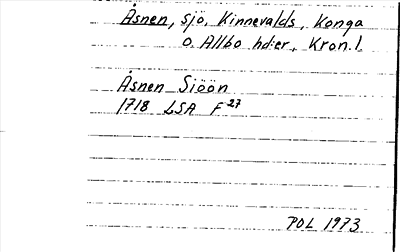 Åsnen, sjö, Kinnevalds, Konga
o. Allbo hd:er, Kron.l.
Åsnen Siöön
1718 LSA F27
POL 1973